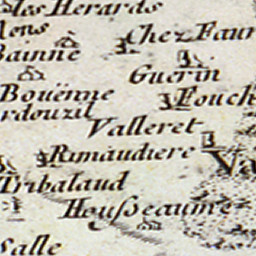 les Herards
Chez Faur
Bainne
Guerin
Bouënne
Fouch
rdouzil
Valleret
Rimaudiere
Va
Tribalaud
Housseaume
salle